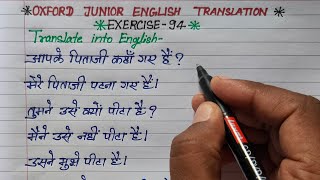 *OXFORD JUNIOR ENGLISH TRANSLATION*
*EXERCISE-94*
Translate into English-
आपके पिताजी कहाँ गए हैं?
मेरे पिताजी पटना गए हैं।
तुमने उसे क्यों पीटा है?
मैंने उसे नहीं पीटा है।
उसने मुझे पीटा है।